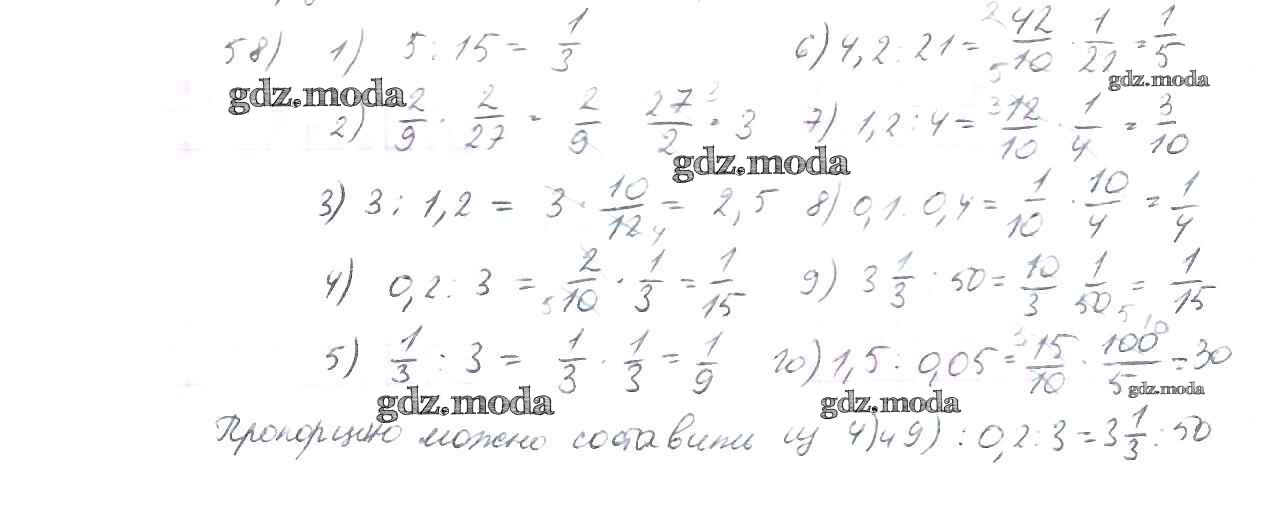 58) 1) 5 : 15 = 1/3 6) 4,2 : 21 = 42/10 · 1/21 = 1/5
gdz.moda gdz.moda
2) 2/9 · 2/27 = 2/9 27/2 = 3 7) 1,2 : 4 = 12/10 · 1/4 = 3/10
gdz.moda
3) 3 : 1,2 = 3 · 10/12 = 2,5 8) 0,1 : 0,4 = 1/10 · 10/4 = 1/4
4) 0,2 : 3 = 2/10 · 1/3 = 1/15 9) 3 1/3 : 50 = 10/3 1/50 = 1/15
5) 1/3 : 3 = 1/3 · 1/3 = 1/9 10) 1,5 : 0,05 = 15/10 · 100/5 = 30
gdz.moda gdz.moda gdz.moda
Пропорцию можно составить из 4) и 9) : 0,2 : 3 = 3 1/3 : 50